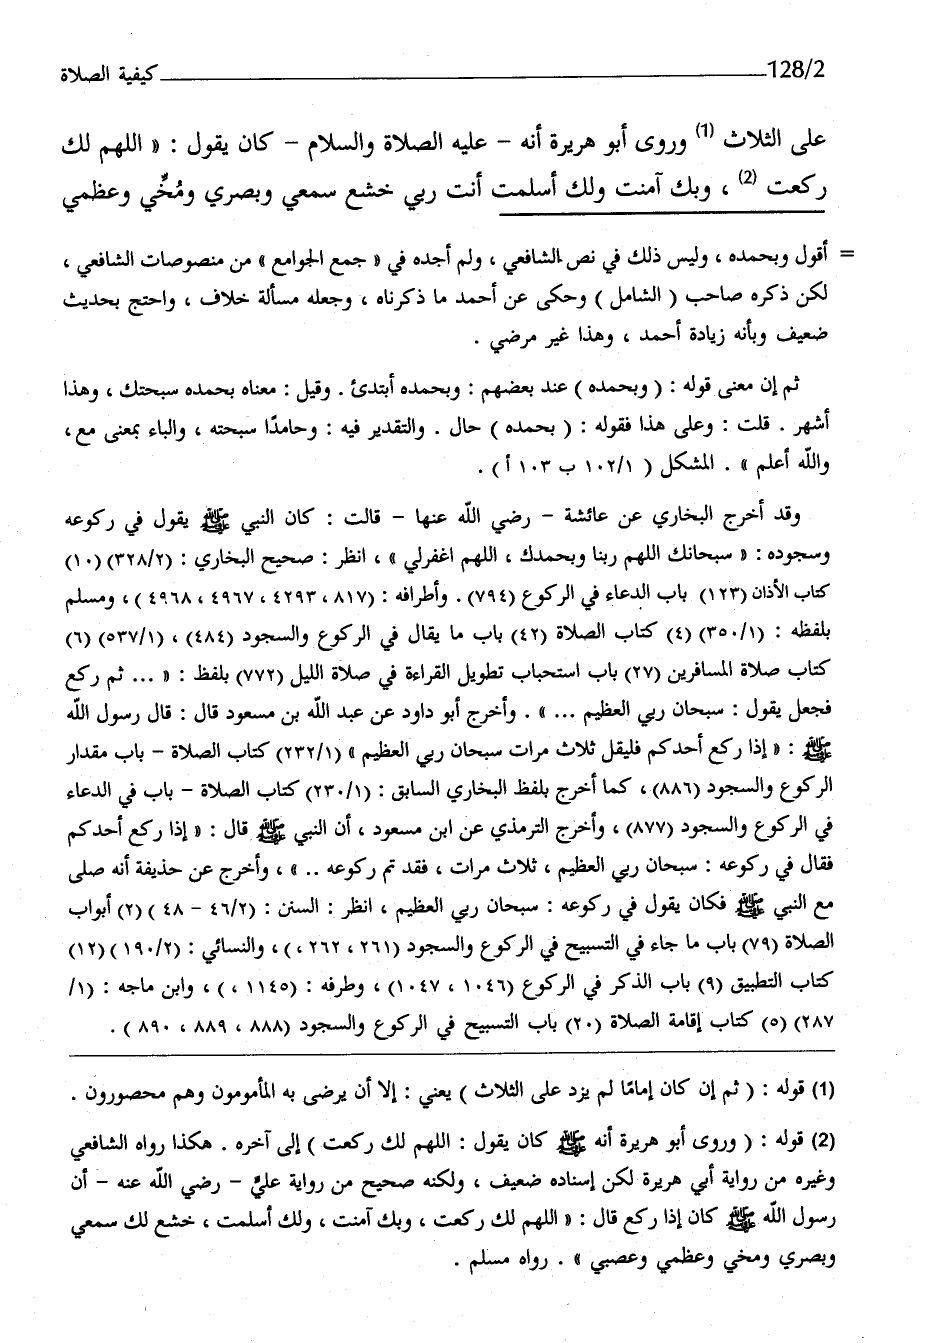 128/2 كيفية الصلاة
على الثلاث (1) وروى أبو هريرة أنه – عليه الصلاة والسلام – كان يقول : « اللهم لك
ركعت (2) ، وبك آمنت ولك أسلمت أنت ربي خشع سمعي وبصري ومُخِّي وعظمي
= أقول وبحمده ، وليس ذلك في نص الشافعي ، ولم أجده في « جمع الجوامع » من منصوصات الشافعي ،
لكن ذكره صاحب ( الشامل ) وحكى عن أحمد ما ذكرناه ، وجعله مسألة خلاف ، واحتج بحديث
ضعيف وبأنه زيادة أحمد ، وهذا غير مرضي .
ثم إن معنى قوله : ( وبحمده ) عند بعضهم : وبحمده أبتدئ . وقيل : معناه بحمده سبحتك ، وهذا
أشهر . قلت : وعلى هذا فقوله : ( بحمده ) حال . والتقدير فيه : وحامدًا سبحته ، والباء بمعنى مع ،
والله أعلم » . المشكل ( ١٠٢/١ ب ١٠٣ أ ) .
وقد أخرج البخاري عن عائشة – رضي الله عنها – قالت : كان النبي ﷺ يقول في ركوعه
وسجوده : « سبحانك اللهم ربنا وبحمدك ، اللهم اغفرلي » ، انظر : صحيح البخاري : (٣٢٨/٢) (١٠)
كتاب الأذان (١٢٣) باب الدعاء في الركوع (٧٩٤) . وأطرافه : (٨١٧ ، ٤٢٩٣ ، ٤٩٦٧ ، ٤٩٦٨ ) ، ومسلم
بلفظه : (٣٥٠/١) (٤) كتاب الصلاة (٤٢) باب ما يقال في الركوع والسجود (٤٨٤) ، (٥٣٧/١) (٦)
كتاب صلاة المسافرين (٢٧) باب استحباب تطويل القراءة في صلاة الليل (٧٧٢) بلفظ : « ... ثم ركع
فجعل يقول : سبحان ربي العظيم ... » . وأخرج أبو داود عن عبد الله بن مسعود قال : قال رسول الله
ﷺ : « إذا ركع أحدكم فليقل ثلاث مرات سبحان ربي العظيم » (٢٣٢/١) كتاب الصلاة – باب مقدار
الركوع والسجود (٨٨٦) ، كما أخرج بلفظ البخاري السابق : (٢٣٠/١) كتاب الصلاة – باب في الدعاء
في الركوع والسجود (٨٧٧) ، وأخرج الترمذي عن ابن مسعود ، أن النبي ﷺ قال : « إذا ركع أحدكم
فقال في ركوعه : سبحان ربي العظيم ، ثلاث مرات ، فقد تم ركوعه .. » ، وأخرج عن حذيفة أنه صلى
مع النبي ﷺ فكان يقول في ركوعه : سبحان ربي العظيم ، انظر : السنن : (٤٦/٢ – ٤٨ ) (٢) أبواب
الصلاة (٧٩) باب ما جاء في التسبيح في الركوع والسجود (٢٦١ ، ٢٦٢ ، ) ، والنسائي : (١٩٠/٢ ) (١٢)
كتاب التطبيق (٩) باب الذكر في الركوع (١٠٤٦ ، ١٠٤٧) ، وطرفه : (١١٤٥ ، ) ، وابن ماجه : (١/
٢٨٧) (٥) كتاب إقامة الصلاة (٢٠) باب التسبيح في الركوع والسجود (٨٨٨ ، ٨٨٩ ، ٨٩٠ ) .
(1) قوله : ( ثم إن كان إمامًا لم يزد على الثلاث ) يعني : إلا أن يرضى به المأمومون وهم محصورون .
(2) قوله : ( وروى أبو هريرة أنه ﷺ كان يقول : اللهم لك ركعت ) إلى آخره . هكذا رواه الشافعي
وغيره من رواية أبي هريرة لكن إسناده ضعيف ، ولكنه صحيح من رواية عليٍّ – رضي الله عنه – أن
رسول الله ﷺ كان إذا ركع قال : « اللهم لك ركعت ، وبك آمنت ، ولك أسلمت ، خشع لك سمعي
وبصري ومخي وعظمي وعصبي » . رواه مسلم .